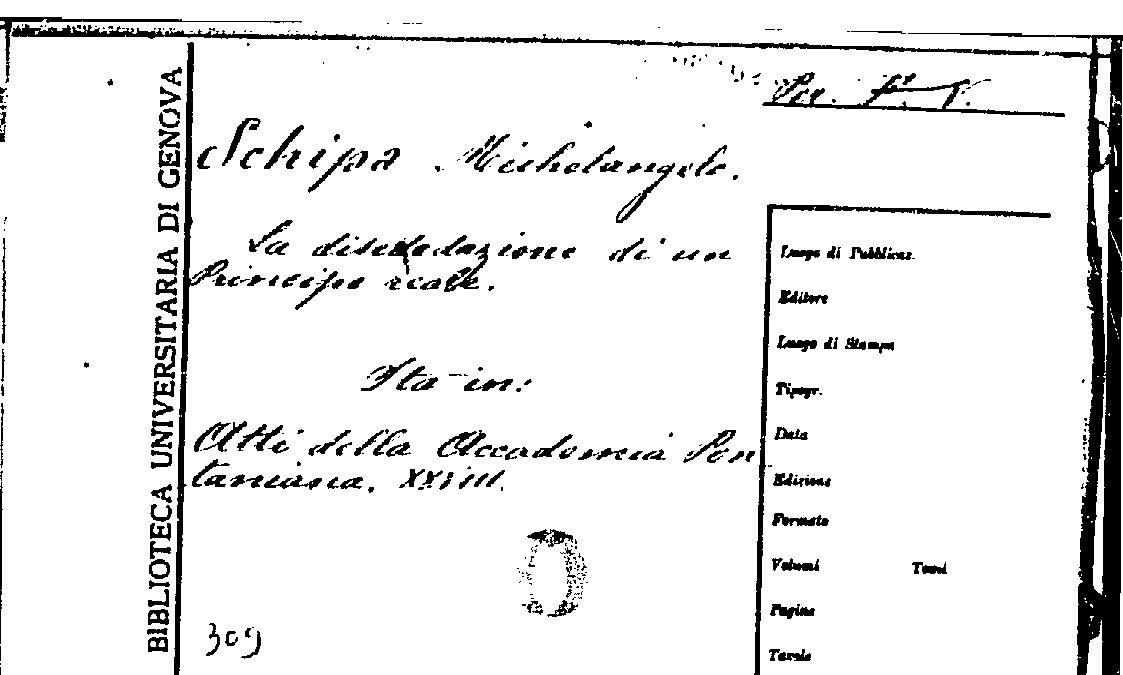 BIBLIOTECA UNIVERSITARIA DI GENOVA
Per. F. V.
Schipa Michelangelo.
La diseredazione di un
Principe reale.
Sta in:
Atti della Accademia Pon-
taniana, XXVIII.
309
Luogo di Pubblicaz.
Editore
Luogo di Stampa
Tipogr.
Data
Edizione
Formato
Volumi Tomi
Pagine
Tavole